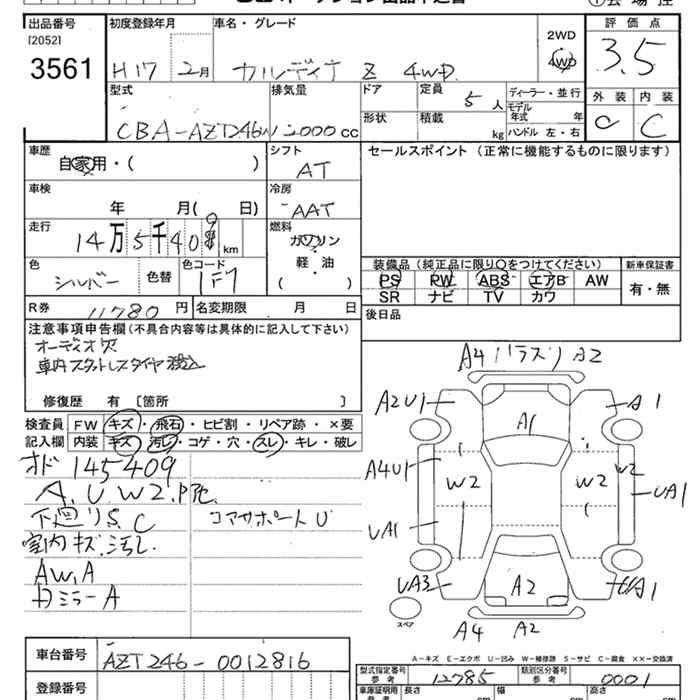 出品番号
[2052]
3561
初度登録年月
H17 2月
車名・グレード
カルディナ Z 4WD
2WD
4WD
評価点
3.5
外装 内装
C C
型式
CBA-AZT246W
排気量
2000cc
ドア
形状
定員 5人
積載 kg
ディーラー・並行
モデル年式 年
ハンドル 左・右
車歴
自家用・( )
シフト
AT
セールスポイント(正常に機能するものに限ります)
車検
年 月( 日)
冷房
AAC
走行
14万5千409km
燃料
ガソリン
軽・油
( )
色
シルバー
色替
色コード
1F7
装備品(純正品に限り○をつけてください)
新車保証書
PS PW ABS エアB AW
有・無
SR ナビ TV カワ
R券 11780円
名変期限 月 日
後日品
注意事項申告欄(不具合内容等は具体的に記入して下さい)
オーディオ欠
車内スタットレスタイヤ積込
修復歴 有 [箇所 ]
検査員記入欄
FW キズ・飛石・ヒビ割・リペア跡・×要
内装 キズ・汚れ・コゲ・穴・スレ・キレ・破レ
オド 145409
A.U.W2.P他.
下廻りS.C コアサポートU
室内キズ.汚レ.
AW.A
Dミラー A
A4 バラズリ A2
A2U1
A1
A1
A4U1
W2
W2
W2
UA1
UA1
UA3
A2
UA1
スペア
A4 A2
A-キズ E-エクボ U-凹み W-補修跡 S-サビ C-腐食 XX-交換済
車台番号
AZT246-0012816
登録番号
型式指定番号 参考 12785
類別区分番号 参考 0001
車庫証明用 参考 長さ cm 幅 cm 高さ cm